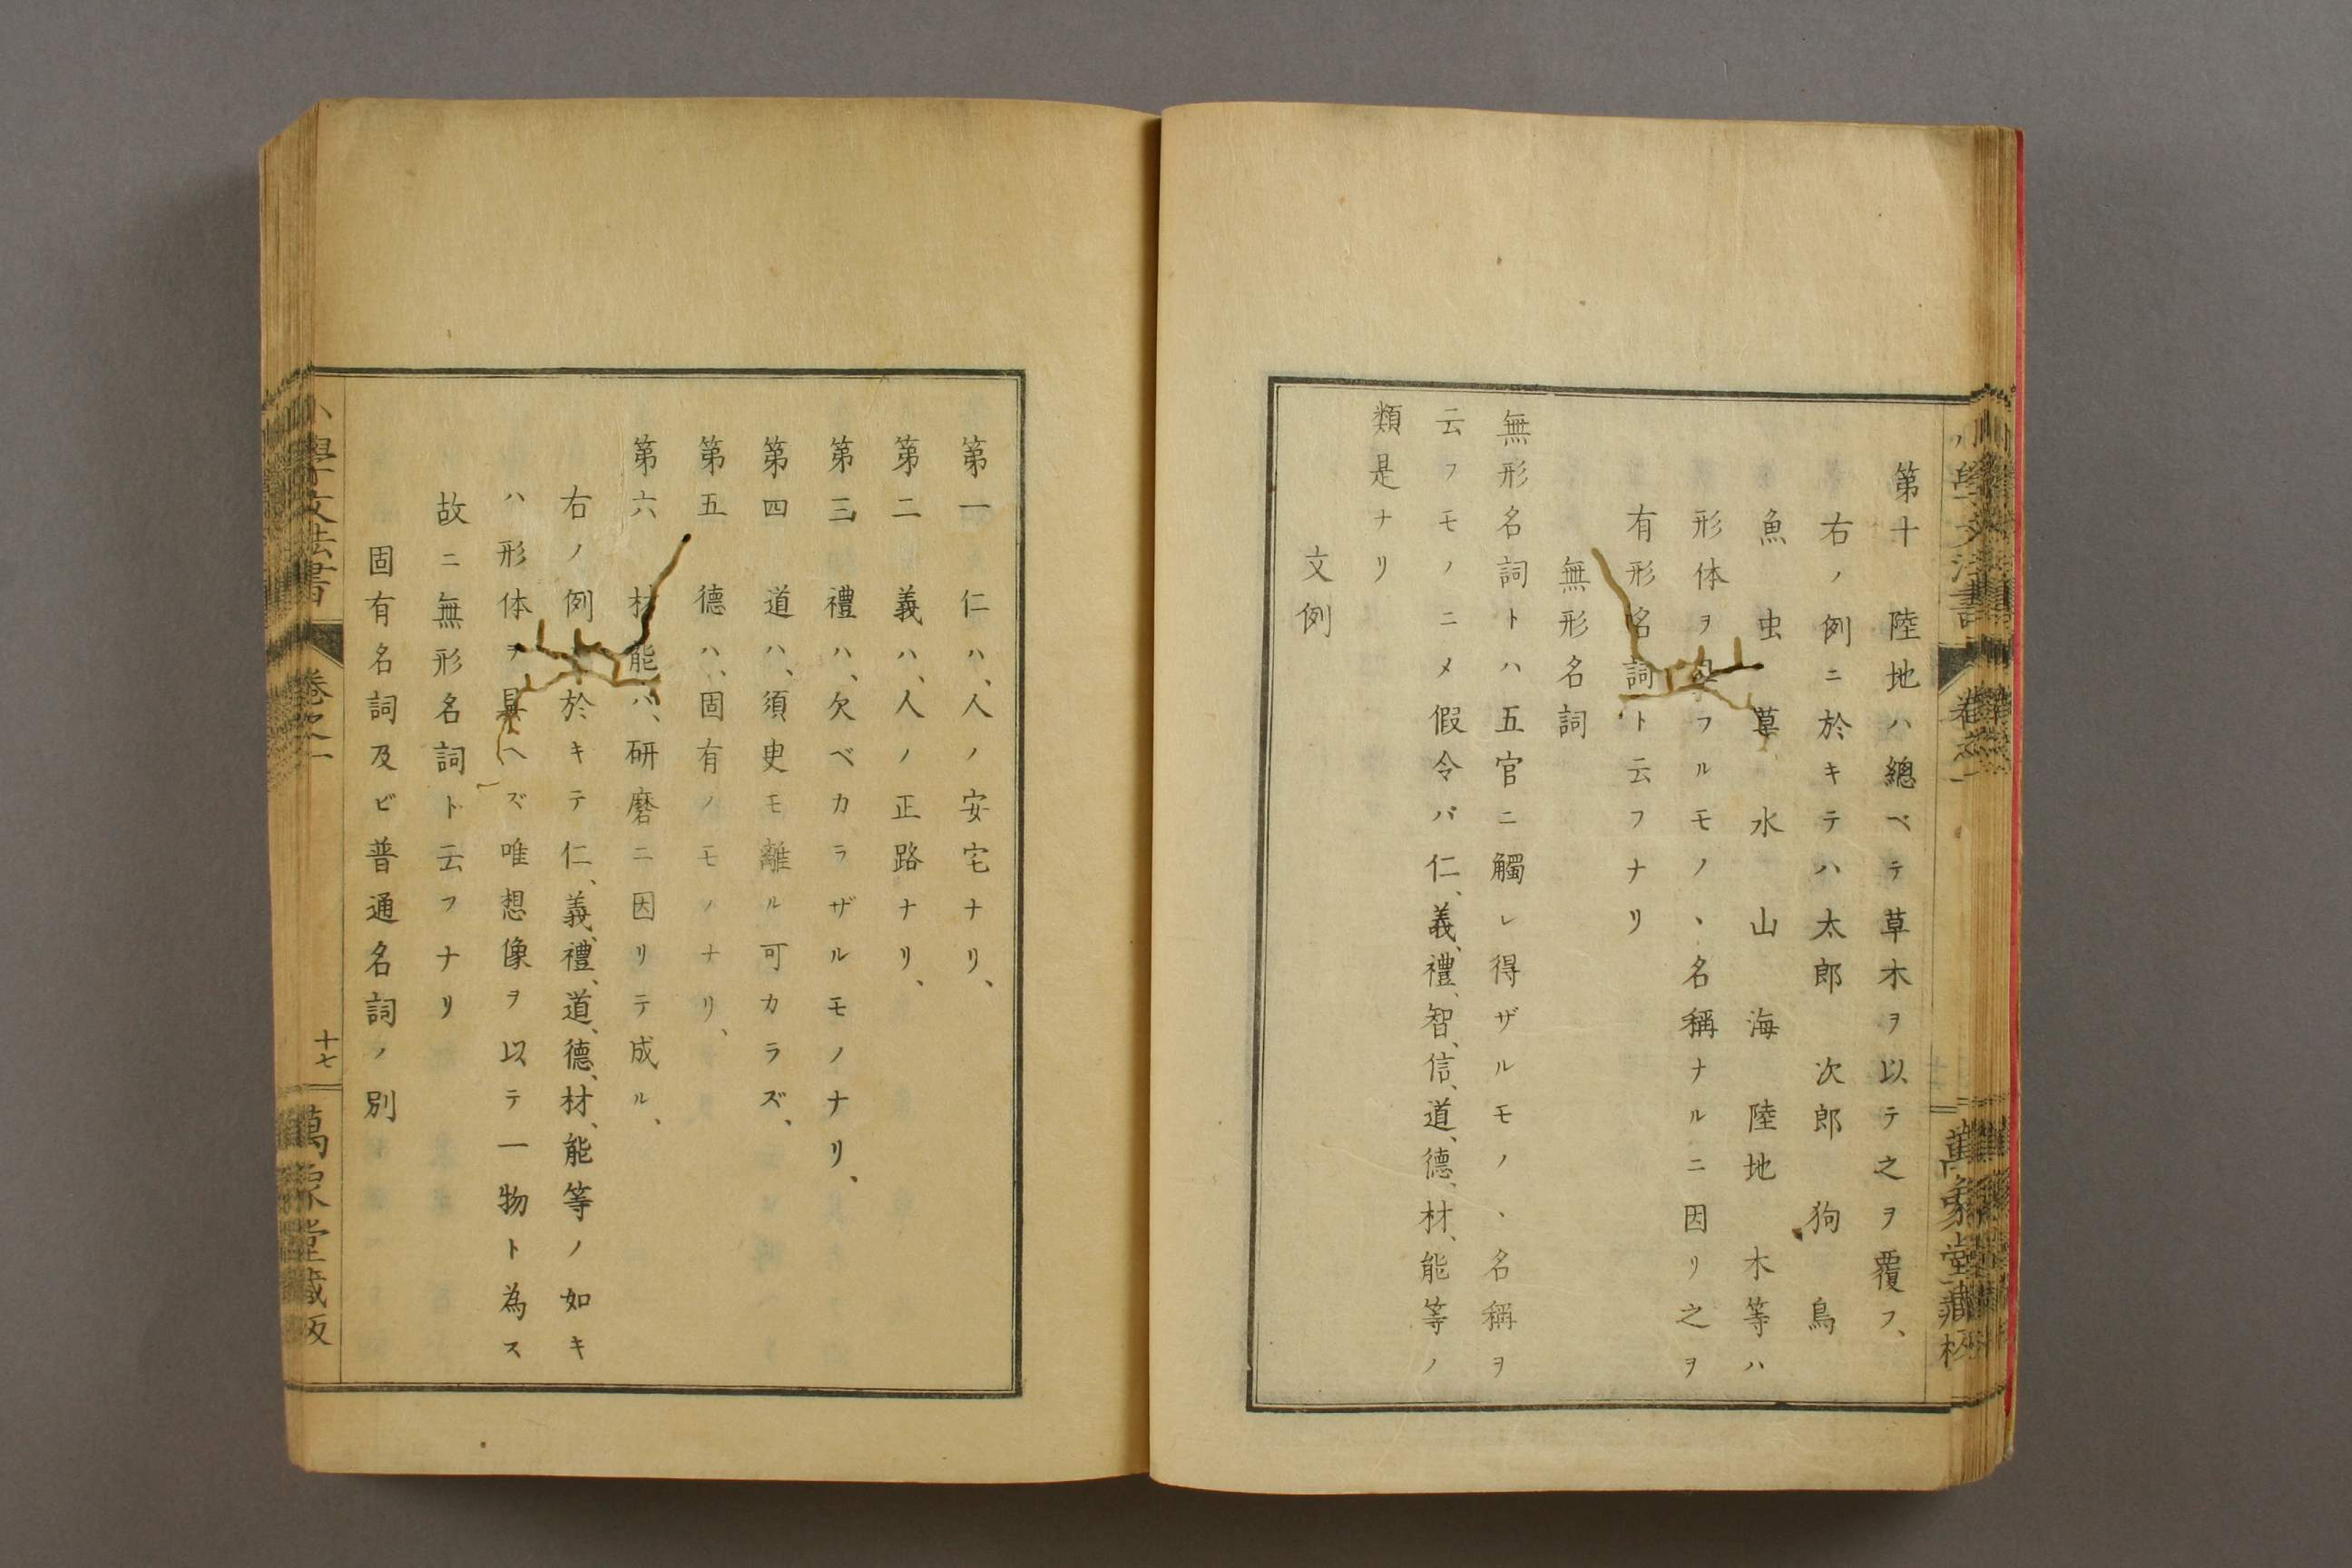 第十 陸地ハ總ベテ草木ヲ以テ之ヲ覆フ、
右ノ例ニ於キテハ太郎 次郎 狗 鳥
魚 虫 草 水 山 海 陸地 木等ハ
形体ヲ フルモノヽ名稱ナルニ因リ之ヲ
有形名詞ト云フナリ
無形名詞
無形名詞トハ五官ニ觸レ得ザルモノヽ名稱ヲ
云フモノニメ假令バ仁、義、禮、智、信、道、德、材、能等ノ
類是ナリ
文例
小學文法書 卷之一 萬象堂藏板
第一 仁ハ、人ノ安宅ナリ、
第二 義ハ、人ノ正路ナリ、
第三 禮ハ、欠ベカラザルモノナリ、
第四 道ハ、須臾モ離ル可カラズ、
第五 德ハ、固有ノモノナリ、
第六 材能ハ、研磨ニ因リテ成ル、
右ノ例 於キテ仁、義、禮、道、德、材、能等ノ如キ
ハ形体ヲ具ヘズ唯想像ヲ以テ一物ト為ス
故ニ無形名詞ト云フナリ
固有名詞及ビ普通名詞ノ別
小學文法書 卷之一 十七 萬象堂藏板